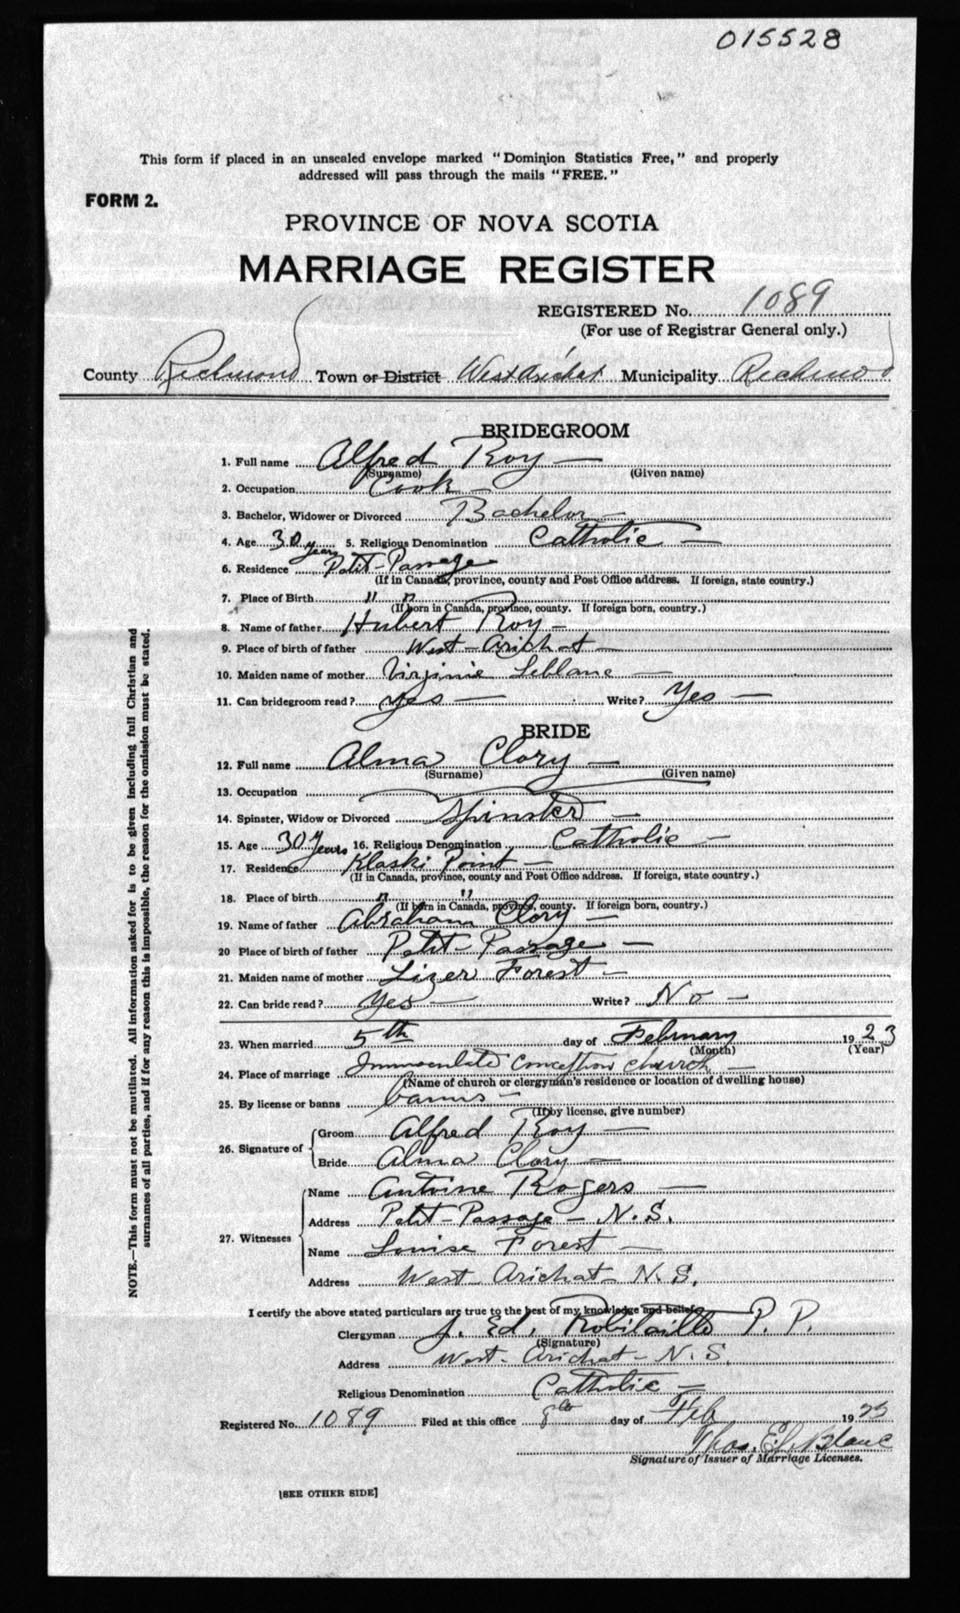 015528
This form if placed in an unsealed envelope marked "Dominion Statistics Free," and properly
addressed will pass through the mails "FREE."
FORM 2.
PROVINCE OF NOVA SCOTIA
MARRIAGE REGISTER
REGISTERED No. 1089
(For use of Registrar General only.)
County Richmond Town or District West Arichat Municipality Richmond
BRIDEGROOM
1. Full name Alfred Roy
(Surname) (Given name)
2. Occupation Cook
3. Bachelor, Widower or Divorced Bachelor
4. Age 30 years 5. Religious Denomination Catholic
6. Residence Petit-Passage
(If in Canada, province, county and Post Office address. If foreign, state country.)
7. Place of Birth " "
(If born in Canada, province, county. If foreign born, country.)
8. Name of father Hubert Roy
9. Place of birth of father West-Arichat
10. Maiden name of mother Virginie Leblanc
11. Can bridegroom read? yes Write? Yes
BRIDE
12. Full name Alma Clory
(Surname) (Given name)
13. Occupation
14. Spinster, Widow or Divorced Spinster
15. Age 30 Years 16. Religious Denomination Catholic
17. Residence Klaski Point
(If in Canada, province, county and Post Office address. If foreign, state country.)
18. Place of birth " "
(If born in Canada, province, county. If foreign born, country.)
19. Name of father Abraham Clory
20 Place of birth of father Petit-Passage
21. Maiden name of mother Lizer Forest
22. Can bride read? Yes Write? No
23. When married 5th day of February 1923
(Month) (Year)
24. Place of marriage Immaculate Conception church
(Name of church or clergyman's residence or location of dwelling house)
25. By license or banns banns
(If by license, give number)
26. Signature of Groom Alfred Roy
Bride Alma Clory
27. Witnesses Name Antoine Rogers
Address Petit-Passage - N.S.
Name Louise Forest
Address West Arichat N.S.
I certify the above stated particulars are true to the best of my knowledge and belief
Clergyman J. Ed. Robitaille P.P.
(Signature)
Address West-Arichat - N.S.
Religious Denomination Catholic
Registered No. 1089 Filed at this office 8th day of Feb 1923
Thos. E. LeBlanc
Signature of Issuer of Marriage Licenses.
[SEE OTHER SIDE]
NOTE.—This form must not be mutilated. All information asked for is to be given including full Christian and
surnames of all parties, and if for any reason this is impossible, the reason for the omission must be stated.